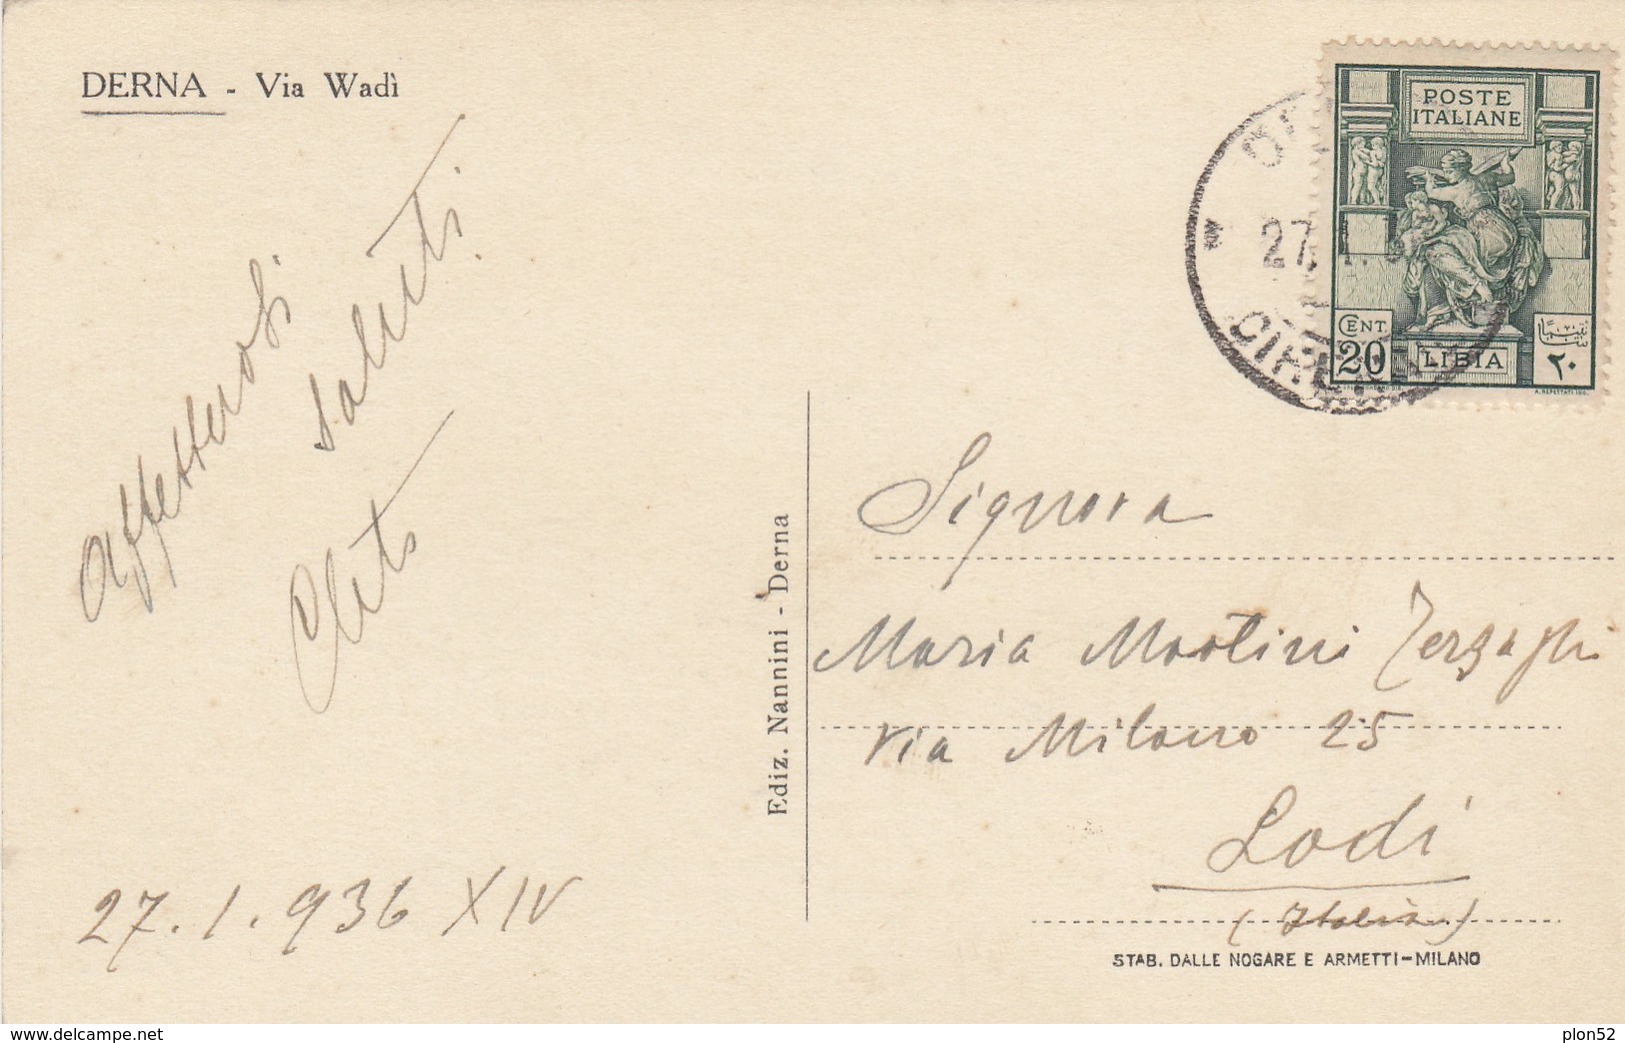 DERNA - Via Wadì
Affettuosi
saluti
Cleto
27.1.936 XIV
Ediz. Nannini - Derna
POSTE
ITALIANE
CENT.
20
LIBIA
٢٠
27. 1.
Signora
Maria Martini Terzaghi
Via Milano 25
Lodi
(Italia)
STAB. DALLE NOGARE E ARMETTI-MILANO
www.delcampe.net
plon52